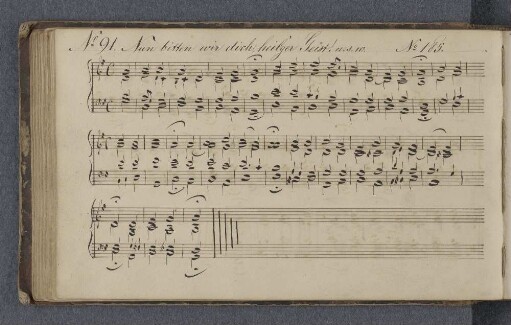 No 91. Nun bitten wir dich, heil'ger Geist! u.s.w. No 185.